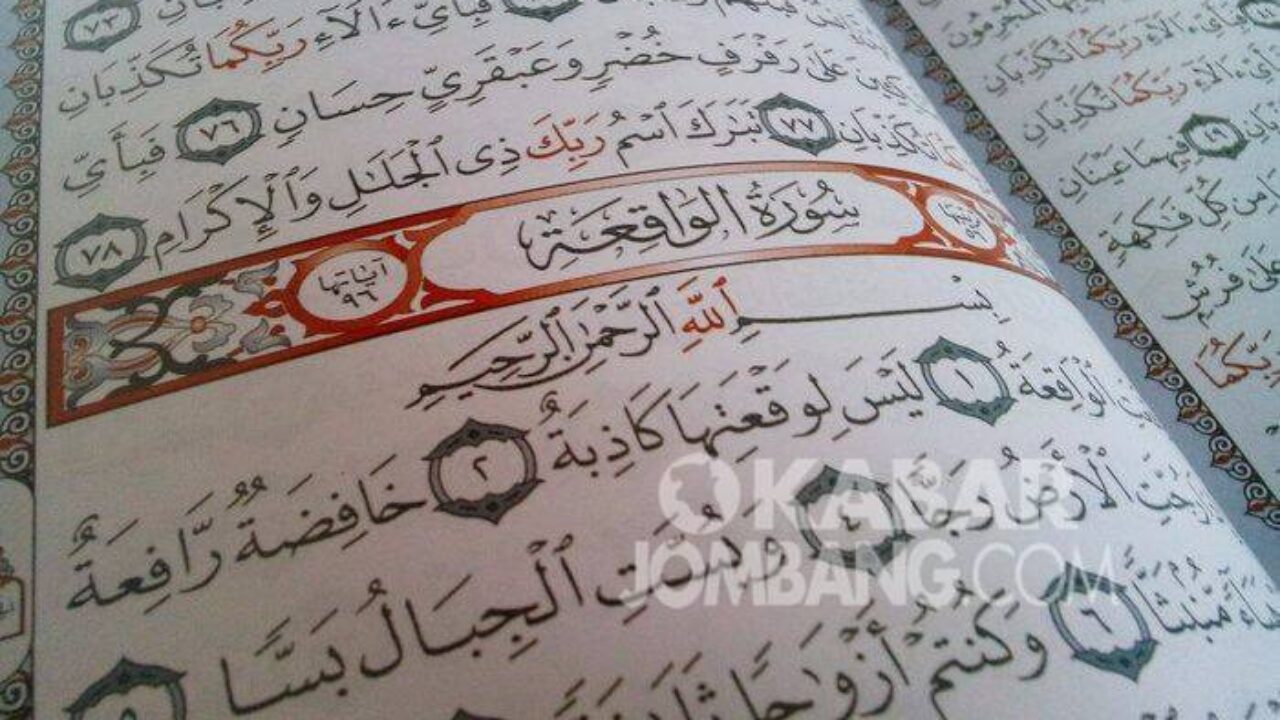 فَبِأَيِّ ءَالَآءِ رَبِّكُمَا تُكَذِّبَانِ
عَلَىٰ رَفْرَفٍ خُضْرٍ وَعَبْقَرِيٍّ حِسَانٍ ٧٦ فَبِأَيِّ
تُكَذِّبَانِ ٧٧ تَبَٰرَكَ ٱسْمُ رَبِّكَ ذِى ٱلْجَلَٰلِ وَٱلْإِكْرَامِ ٧٨
سُورَةُ الوَاقِعَةِ
آيَاتُهَا ٩٦
بِسْمِ ٱللَّهِ ٱلرَّحْمَٰنِ ٱلرَّحِيمِ
ٱلْوَاقِعَةُ ١ لَيْسَ لِوَقْعَتِهَا كَاذِبَةٌ ٢ خَافِضَةٌ رَّافِعَةٌ
رُجَّتِ ٱلْأَرْضُ رَجًّا ٤ وَبُسَّتِ ٱلْجِبَالُ بَسًّا ٥
مُّنۢبَثًّا ٦ وَكُنتُمْ أَزْوَٰجًا ثَلَٰثَةً
ٱلْمُجْرِمُونَ
فَبِأَيِّ ءَالَآءِ رَبِّكُمَا تُكَذِّبَانِ
ءَالَآءِ رَبِّكُمَا تُكَذِّبَانِ
فِيهِمَا عَيْنَانِ
مِن كُلِّ فَٰكِهَةٍ
عَلَىٰ فُرُشٍۭ
رَبِّكُمَا
KABAR
JOMBANG.COM